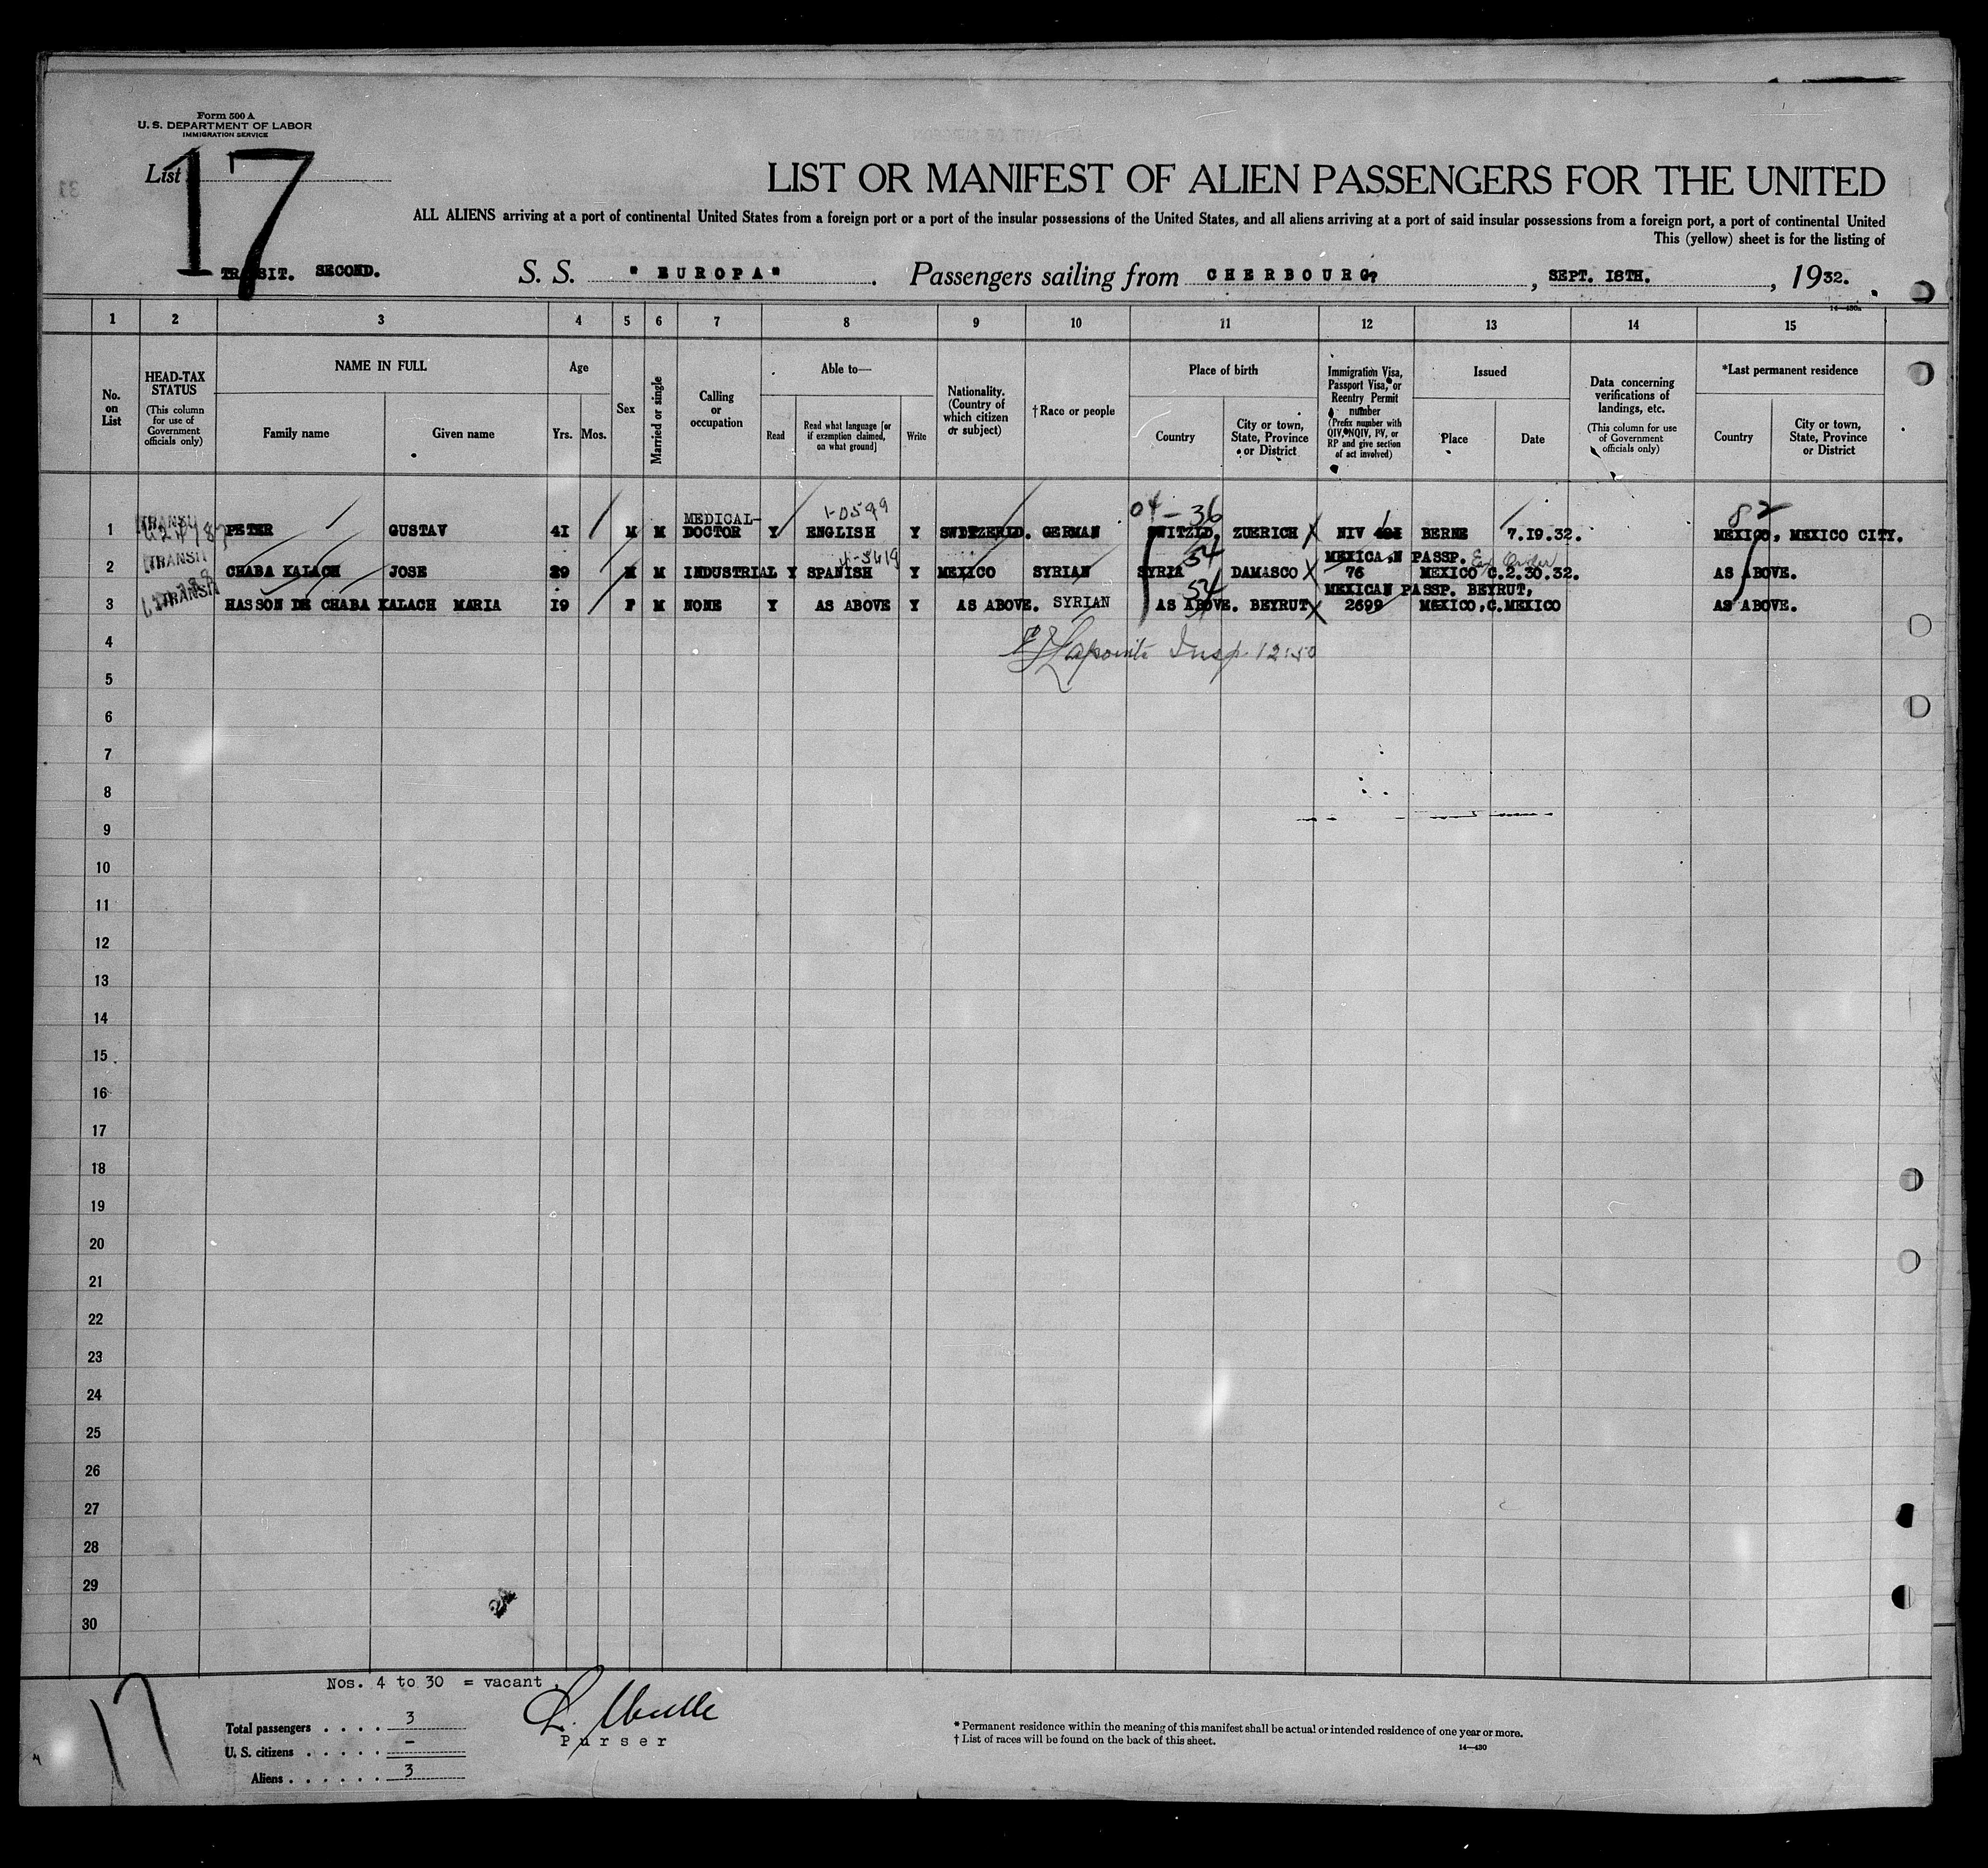 Form 500 A
U. S. DEPARTMENT OF LABOR
IMMIGRATION SERVICE
List 17
LIST OR MANIFEST OF ALIEN PASSENGERS FOR THE UNITED
ALL ALIENS arriving at a port of continental United States from a foreign port or a port of the insular possessions of the United States, and all aliens arriving at a port of said insular possessions from a foreign port, a port of continental United
This (yellow) sheet is for the listing of
TRANSIT. SECOND. S. S. "EUROPA". Passengers sailing from CHERBOURG, SEPT. 18TH., 1932.
1 2 3 4 5 6 7 8 9 10 11 12 13 14 15
No. on List
HEAD-TAX STATUS (This column for use of Government officials only)
NAME IN FULL
Family name
Given name
Age
Yrs. Mos.
Sex
Married or single
Calling or occupation
Able to—
Read
Read what language [or if exemption claimed, on what ground]
Write
Nationality. (Country of which citizen or subject)
†Race or people
Place of birth
Country
City or town, State, Province or District
Immigration Visa, Passport Visa, or Reentry Permit number (Prefix number with QIV, NQIV, PV, or RP and give section of act involved)
Issued
Place
Date
Data concerning verifications of landings, etc. (This column for use of Government officials only)
*Last permanent residence
Country
City or town, State, Province or District
1-0599 04-36 82
1 TRANSIT PETER GUSTAV 41 M M MEDICAL-DOCTOR Y ENGLISH Y SWITZERLD. GERMAN SWITZLD. ZUERICH NIV BERNE 7.19.32. MEXICO, MEXICO CITY.
2 TRANSIT CHABA KALACH JOSE 29 M M INDUSTRIAL Y SPANISH Y MEXICO SYRIAN SYRIA DAMASCO MEXICAN PASSP. 76 MEXICO C.2.30.32. AS ABOVE.
3 TRANSIT HASSON DE CHABA KALACH MARIA 19 F M NONE Y AS ABOVE Y AS ABOVE. SYRIAN AS ABOVE. BEYRUT MEXICAN PASSP. BEYRUT, 2699 MEXICO,C.MEXICO AS ABOVE.
4 Lapointe Insp. 12:50
5
6
7
8
9
10
11
12
13
14
15
16
17
18
19
20
21
22
23
24
25
26
27
28
29
30
Nos. 4 to 30 = vacant
17
Total passengers . . . . 3
U. S. citizens . . . . . -
Aliens . . . . . . 3
Purser
* Permanent residence within the meaning of this manifest shall be actual or intended residence of one year or more.
† List of races will be found on the back of this sheet.
14—430